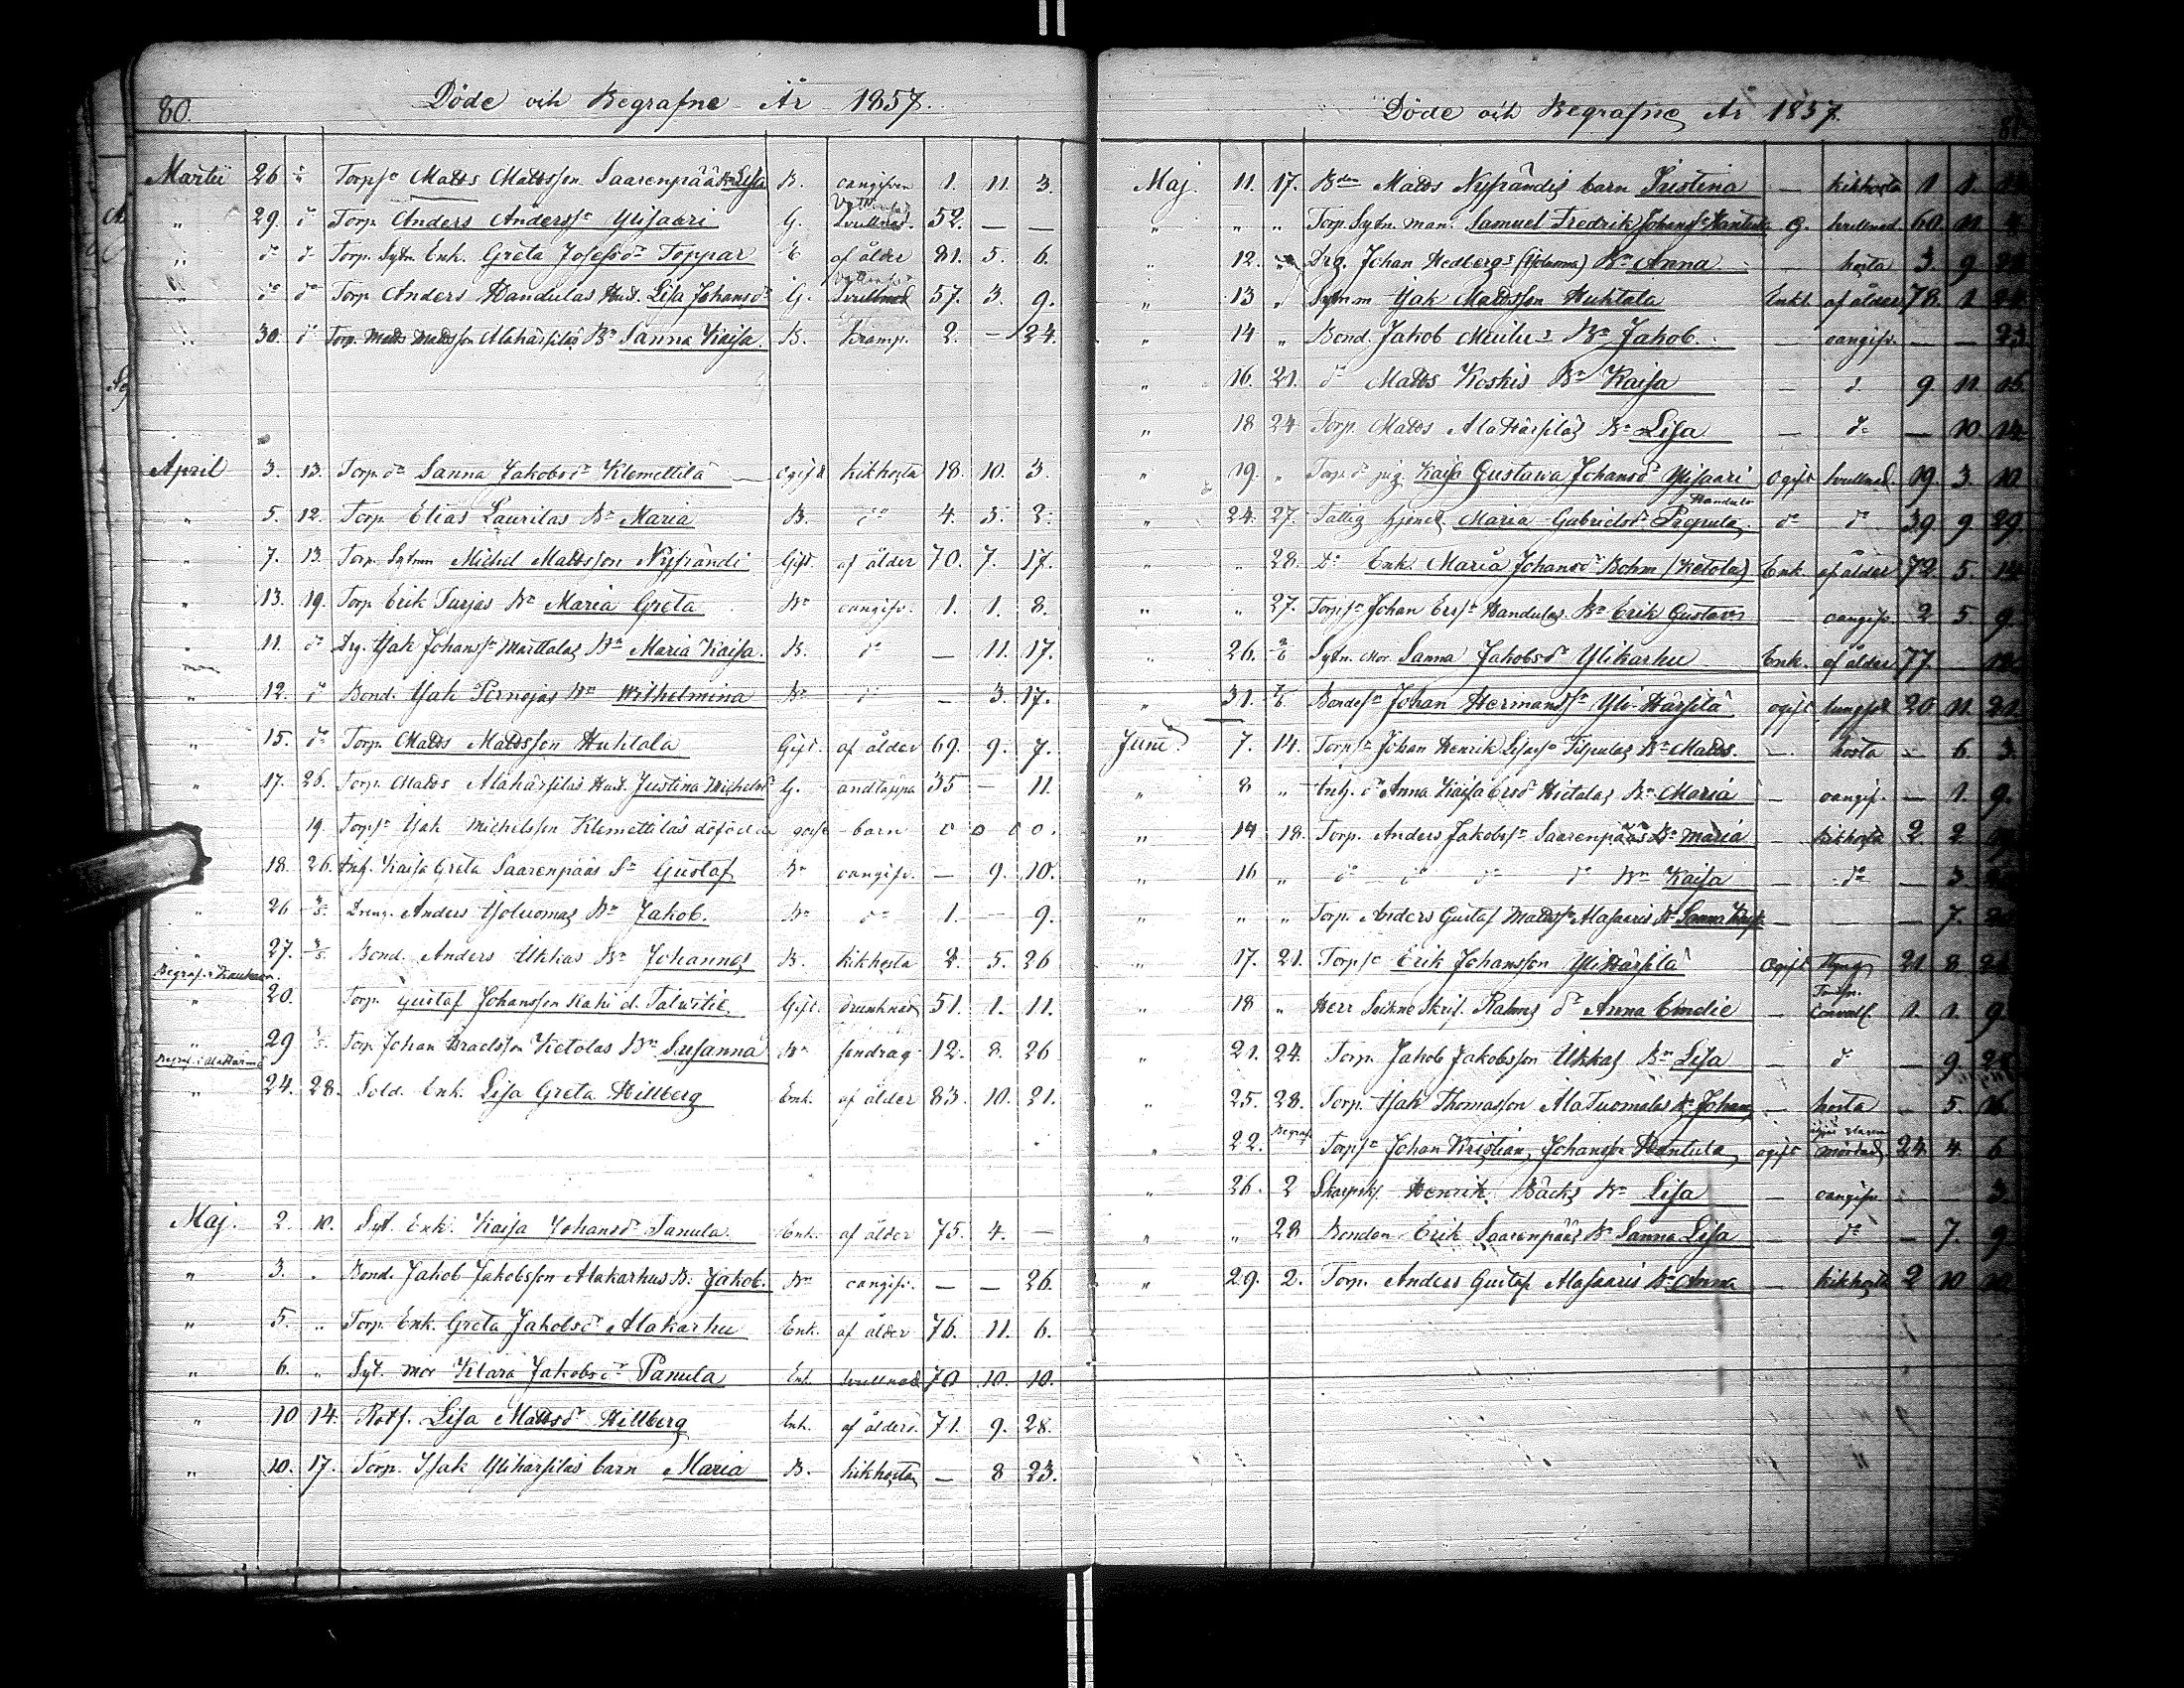 80. Döde och Begrafne År 1857.
Martii 26 Torpsn Matts Mattsson Saarenpääs Lisa B. oangifven 1. 11. 3.
" 29. do Torp. Anders Anderssn Ylisaari G. Svullnad. 52. — —
" do do Torp. Sytn. Enk. Greta Josefsdr Toppar E af ålder 81. 5. 6.
" do do Torp Anders Handulas Hust. Lisa Johansdr G. Svullnad 57. 3. 9.
" 30. do Torp. Matts Mattsson Alahärsiläs Bn Sanna Kaisa. B. Kramp. 2. — 24.
April 3. 13. Torp. dr Sanna Jakobsdr Klemettilä ogift kikhosta 18. 10. 3.
" 5. 12. Torp. Elias Laurilas Bn Maria B. do 4. 3.
" 7. 13. Torp. Sytn Michel Mattsson Nyfrändi Gift. af ålder 70. 7. 17.
" 13. 19. Torp. Erik Turjas Bn Maria Greta Bn oangifv. 1. 1. 8.
" 11. do Drg. Isak Johanssn Marttalas Bn Maria Kaisa. B. do — 11. 17.
" 12. do Bond. Isak Pernajas Bn Wilhelmina Bn do — 3. 17.
" 15. do Torp. Matts Mattsson Huhtala Gift. af ålder 69. 9. 7.
" 17. 26. Torp. Matts Alahärsiläs Hust. Justina Michelsdr G. andtäppa 35 — 11.
19. Torpsn Isak Michelsson Klemettiläs dödfödda gosse barn 0 0 0 0.
18. 26. Inh. Kaisa Greta Saarenpääs Sn Gustaf Bn oangifv. — 9. 10.
" 26 3/5 Dreng. Anders Isoluomas Bn Jakob. Bn do 1. — 9.
" 27. 3/5 Bond. Anders Ukkas Bn Johannes B. kikhosta 2. 5. 26
Begraf. i Kauhava.
" 20. Torp. Gustaf Johansson Kahi Gift. drunknad 51. 1. 11.
" 29 Torp. Johan Israelsson Ketolas Bn Susanna Bn sendrag 12. 8. 26
Begraf. i Alahärmä
" 24. 28. Sold. Enk. Lisa Greta Hillberg Enk. af ålder 83. 10. 21.
Maj. 2. 10. Syt. Enk. Kaisa Johansdr Panula. Enk. af ålder 75. 4. —
" 3. " Bond. Jakob Jakobsson Alakarhus B. Jakob. Bn oangifv. — — 26.
" 5. " Torp. Enk. Greta Jakobsdr Alakarhu Enk. af ålder 76. 11. 6.
" 6. " Syt. mor Klara Jakobsdr Panula Enk. svullnad 70 10. 10.
" 10 14. Rotf. Lisa Mattsdr Hillberg Enk. af ålderd. 71. 9. 28.
" 10. 17. Torp. Isak Ylihärsiläs barn Maria B. kikhosta — 8 23.
Döde och Begrafne År 1857.
Maj. 11. 17. Bden Matts Nyfrändis barn Justina — kikhosta 1 1.
" " " Torp. Sytn. man. Samuel Fredrik Johanssn G. svullnad. 60. 11
" 12. " Drg. Johan Hedbergs (Isoluoma) Bn Anna — hosta 3. 9.
" 13 " Sytnm Isak Mattsson Huhtala Enkl. af ålder 78. 1.
" 14 " Bond. Jakob Bn Jakob. — oangifv. — — 23
" 16. 21. do Matts Koskis Bn Kaisa — do 9. 11.
" 18 24 Torp. Matts Ala Härsiläs Bn Lisa — do — 10.
" 19. " Torp. dr pig. Kaisa Gustava Johansdr Ylisaari ogift svullnad. 19. 3. 10
" 24. 27. Fattig hjonet Maria Gabrielsdr Handula do do 39. 9 29.
" " 28. Do Enk. Maria Johansdr Bohm (Ketola) Enk. af ålder 72. 5. 14
" " 27. Torpsn Johan Erssn Handulas Bn Erik Gustav — oangifv. 2 5 9
" 26. 2/6 Sytn. mor. Sanna Jakobsdr Ylikarhu Enk. af ålder 77. —
" 31. 7/6 Bondesn Johan Hermanssn Yli-Härsilä ogift lungsot 20. 11. 21
Junii 7. 14. Torpsn Johan Henrik Bn Matts. — hosta — 6. 3.
" 8 " Inh. dr Anna Kaisa Ersdr Hietalas Bn Maria — oangif. — 1. 9.
" 14 18. Torp. Anders Jakobssn Saarenpääs Bn Maria — kikhosta 2. 2
" 16 " do do do do Bn Kaisa — do — 3.
" " " Torp. Anders Gustaf Mattssn Alasaaris Bn Sanna Kaisa — — 7.
" 17. 21. Torpsn Erik Johansson Ylihärsilä ogift 21. 8
" 18 " Herr Sockne Skrif. Ralms dr Anna Emelie — 1. 1. 9
" 21. 24. Torp. Jakob Jakobsson Ukkas Bn Lisa — do — 9. 24
" 25. 28. Torp. Isak Thomasson Ala Tuomalas Bn Johan — hosta — 5. 16
" 22. Begraf. Torpsn Johan Kristian Johanssn Hantula ogift mördad 24. 4. 6
" 26. 2 Henrik Bäcks Bn Lisa — oangifv. 3
" " 28 Bonden Erik Saarenpääs Bn Sanna Lisa — do — 7. 9
" 29. 2. Torp. Anders Gustaf Alasaaris Bn Anna — kikhosta 2 10